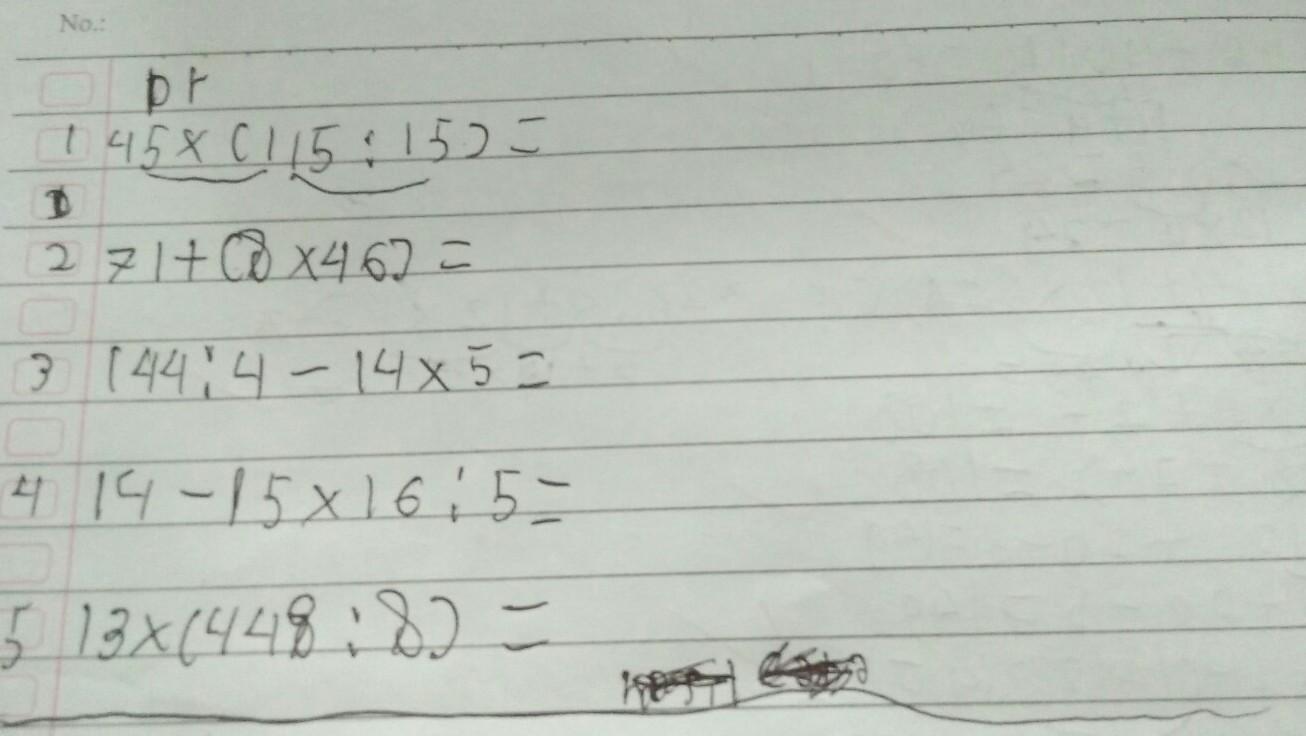 No.:
pr
1 45 × (115 : 15) =
2 71 + (8 × 46) =
3 144 : 4 - 14 × 5 =
4 14 - 15 × 16 : 5 =
5 13 × (448 : 8) =